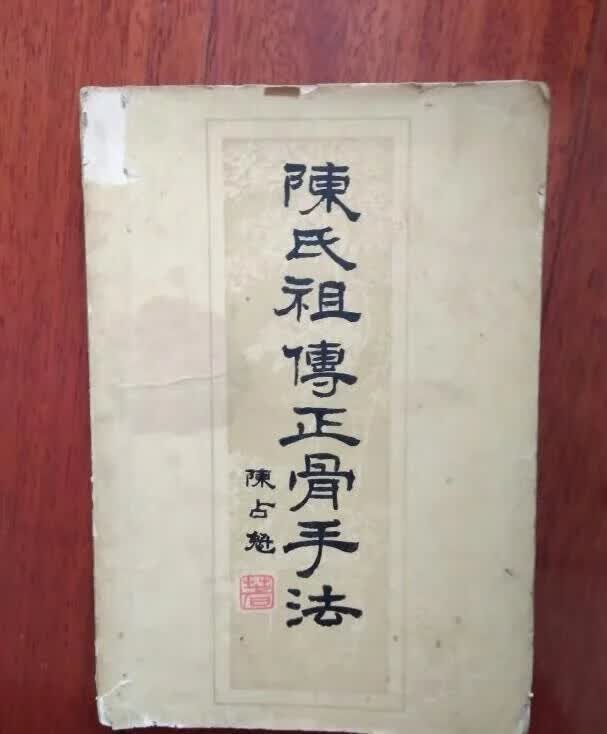 陳氏祖傳正骨手法
陳占魁
著